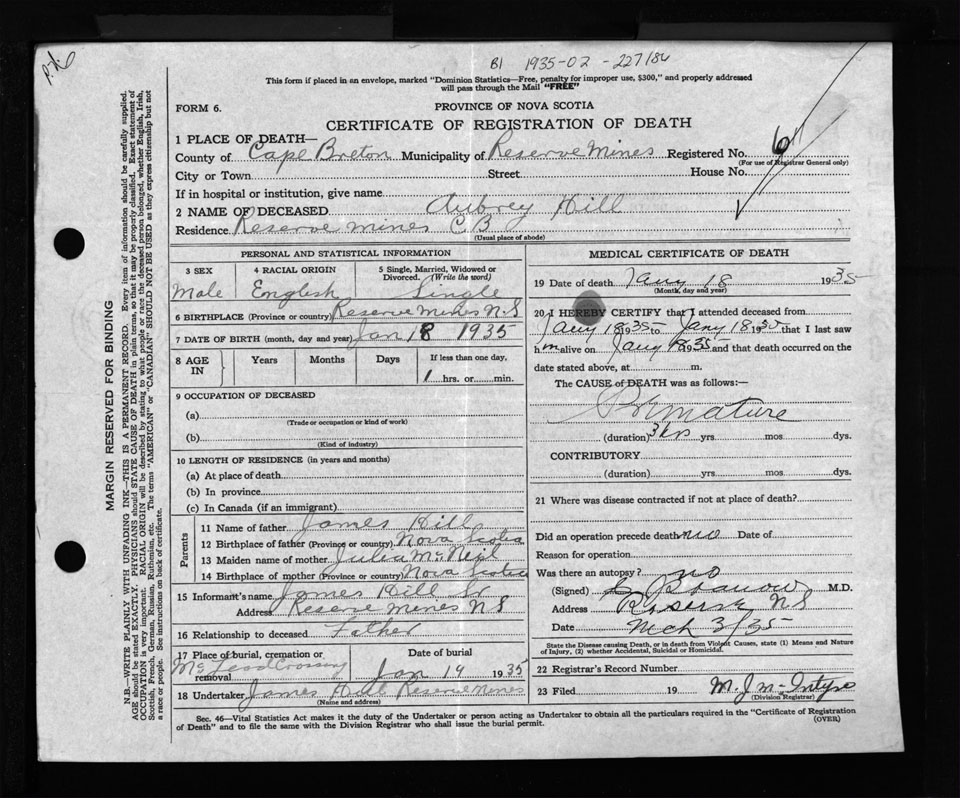 P.N.6
B1 1935-02-227186
This form if placed in an envelope, marked "Dominion Statistics—Free, penalty for improper use, $300," and properly addressed
will pass through the Mail "FREE"
FORM 6.
PROVINCE OF NOVA SCOTIA
CERTIFICATE OF REGISTRATION OF DEATH
1 PLACE OF DEATH—
County of Cape Breton Municipality of Reserve Mines Registered No. 6
(For use of Registrar General only)
City or Town Street House No.
If in hospital or institution, give name
2 NAME OF DECEASED Aubrey Hill
Residence Reserve mines C B
(Usual place of abode)
PERSONAL AND STATISTICAL INFORMATION
3 SEX 4 RACIAL ORIGIN 5 Single, Married, Widowed or
Divorced. (Write the word)
Male English Single
6 BIRTHPLACE (Province or country) Reserve Mines N.S
7 DATE OF BIRTH (month, day and year) Jan 18 1935
8 AGE IN Years Months Days If less than one day,
1 hrs. or min.
9 OCCUPATION OF DECEASED
(a)
(Trade or occupation or kind of work)
(b)
(Kind of industry)
10 LENGTH OF RESIDENCE (in years and months)
(a) At place of death
(b) In province
(c) In Canada (if an immigrant)
Parents
11 Name of father James Hill
12 Birthplace of father (Province or country) Nova Scotia
13 Maiden name of mother Julia McNeil
14 Birthplace of mother (Province or country) Nova Scotia
15 Informant's name James Hill Sr
Address Reserve Mines N S
16 Relationship to deceased Father
17 Place of burial, cremation or Date of burial
removal McLeod Crossing Jan 19 1935
18 Undertaker James Hill Reserve Mines
(Name and address)
MEDICAL CERTIFICATE OF DEATH
19 Date of death Jany 18 1935
(Month, day and year)
20 I HEREBY CERTIFY that I attended deceased from
Jany 18 1935 to Jany 18 1935 that I last saw
h m alive on Jany 18 1935 and that death occurred on the
date stated above, at m.
The CAUSE OF DEATH was as follows:—
Premature
(duration) 3 hrs yrs mos dys.
CONTRIBUTORY
(duration) yrs mos dys.
21 Where was disease contracted if not at place of death?
Did an operation precede death no Date of
Reason for operation
Was there an autopsy? no
(Signed) M.D.
Address Reserve N S
Date Mch 3/35
State the Disease causing Death, or in death from Violent Causes, state (1) Means and Nature
of Injury, (2) whether Accidental, Suicidal or Homicidal.
22 Registrar's Record Number
23 Filed 19 M. J. McIntyre
(Division Registrar)
Sec. 46—Vital Statistics Act makes it the duty of the Undertaker or person acting as Undertaker to obtain all the particulars required in the "Certificate of Registration
of Death" and to file the same with the Division Registrar who shall issue the burial permit.
(OVER)
MARGIN RESERVED FOR BINDING
N.B.—WRITE PLAINLY WITH UNFADING INK—THIS IS A PERMANENT RECORD. Every item of information should be carefully supplied.
AGE should be stated EXACTLY. PHYSICIANS should STATE CAUSE OF DEATH in plain terms, so that it may be properly classified. Exact statement of
OCCUPATION is very important. RACIAL ORIGIN will be described by stating to what people or race the deceased person belonged, whether English, Irish,
Scottish, French, German, Russian, Ruthenian, etc. The terms "AMERICAN" or "CANADIAN" SHOULD NOT BE USED as they express citizenship but not
a race or people. See instructions on back of certificate.